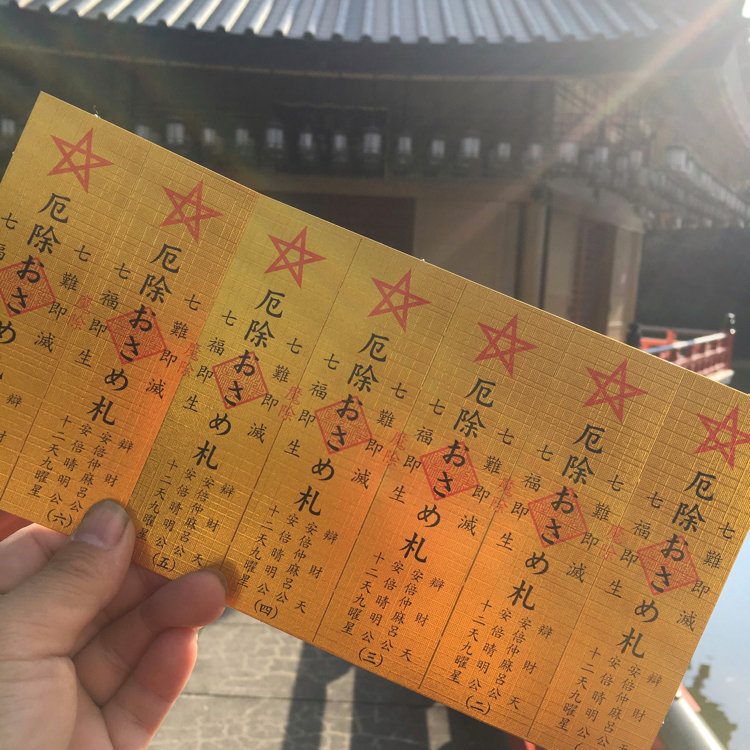 七難即滅
厄除おさめ札
七福即生
辯
安倍仲麻呂公
安倍晴明公
十二天九曜星
七難即滅
魔除
厄除おさめ札
七福即生
辯財天
安倍仲麻呂公
安倍晴明公
十二天九曜星
(二)
七難即滅
魔除
厄除おさめ札
七福即生
辯財天
安倍仲麻呂公
安倍晴明公
十二天九曜星
(三)
七難即滅
魔除
厄除おさめ札
七福即生
辯財天
安倍仲麻呂公
安倍晴明公
十二天九曜星
(四)
七難即滅
魔除
厄除おさめ札
七福即生
辯財天
安倍仲麻呂公
安倍晴明公
十二天九曜星
(五)
七難即滅
魔除
厄除おさめ札
七福即生
辯財
安倍仲麻呂公
安倍晴明公
十二天九曜星
(六)
七難即滅
魔除
厄除おさめ
七
辯財